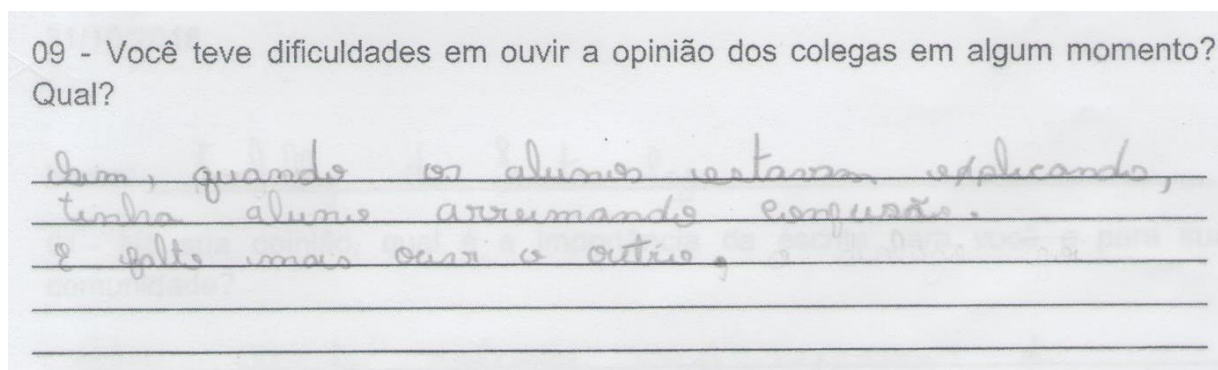 09 - Você teve dificuldades em ouvir a opinião dos colegas em algum momento?
Qual?
Sim, quando os alunos estavam explicando,
tinha aluno arrumando confusão.
e falto mais ouvir o outro.